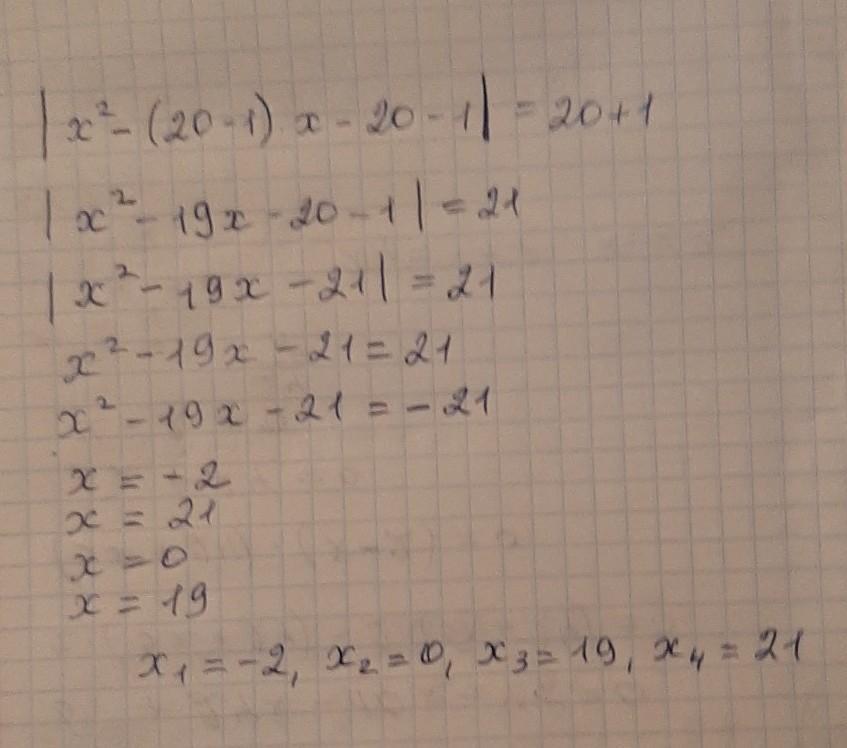 |x² - (20 - 1) x - 20 - 1| = 20 + 1
|x² - 19x - 20 - 1| = 21
|x² - 19x - 21| = 21
x² - 19x - 21 = 21
x² - 19x - 21 = - 21
x = - 2
x = 21
x = 0
x = 19
x₁ = -2, x₂ = 0, x₃ = 19, x₄ = 21